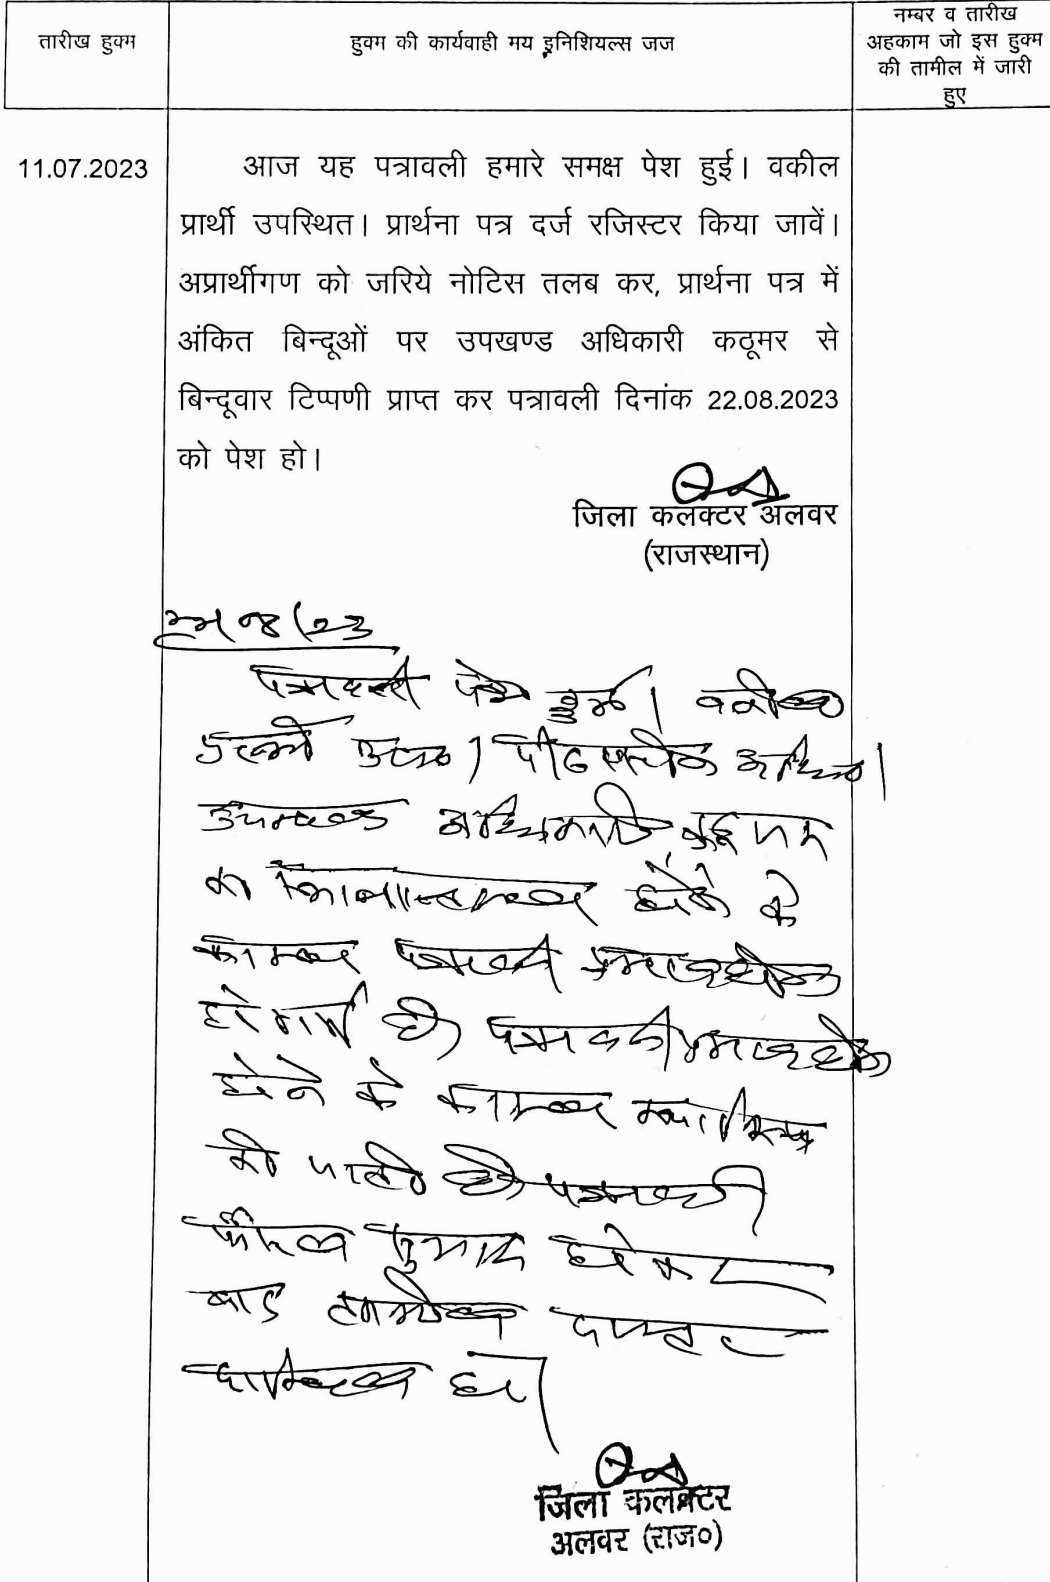 तारीख हुक्म
हुक्म की कार्यवाही मय इनिशियल्स जज
नम्बर व तारीख
अहकाम जो इस हुक्म
की तामील में जारी
हुए
11.07.2023
आज यह पत्रावली हमारे समक्ष पेश हुई। वकील
प्रार्थी उपस्थित। प्रार्थना पत्र दर्ज रजिस्टर किया जावें।
अप्रार्थीगण को जरिये नोटिस तलब कर, प्रार्थना पत्र में
अंकित बिन्दूओं पर उपखण्ड अधिकारी कठूमर से
बिन्दूवार टिप्पणी प्राप्त कर पत्रावली दिनांक 22.08.2023
को पेश हो।
जिला कलक्टर अलवर
(राजस्थान)
पत्रावली पेश हुई। वकील
उपखण्ड अधिकारी कठूमर
का स्थानान्तरण होने के
कारण पत्रावली
हो गई है। पत्रावली
होने के कारण खारिज
की जाती है। पत्रावली
फैसल शुमार होकर
बाद तकमील दफ्तर
दाखिल हो।
जिला कलक्टर
अलवर (राज०)